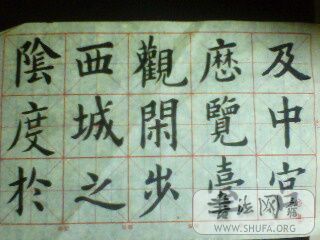 及中宫
歷覽臺
觀閑步
西城之
陰度於
書法网
WWW.SHUFA.ORG